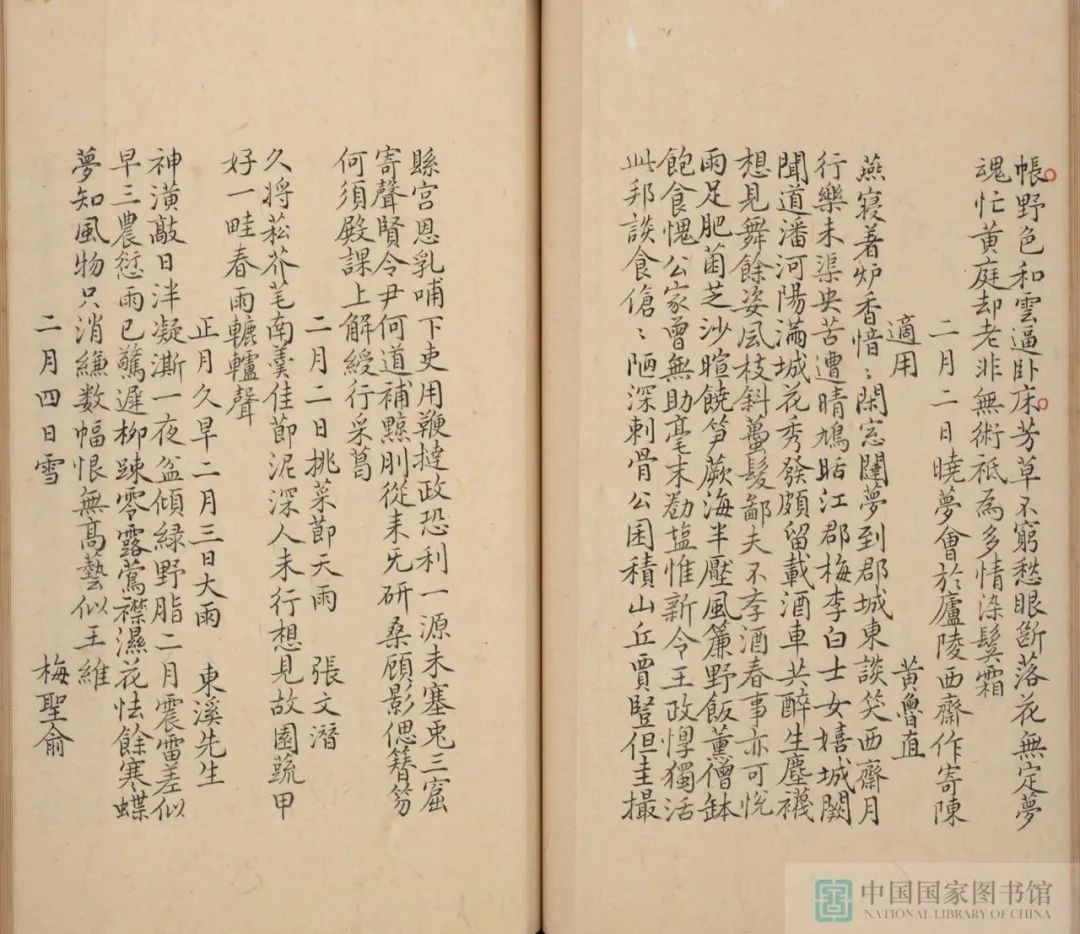 帳野色和雲逼卧床芳草不窮愁眼斷落花無定夢
魂忙黄庭却老非無術祗為多情染鬂霜
二月二日曉夢會於廬陵西齋作寄陳
適用 黄魯直
燕寢著炉香愔〻閑窓闥夢到郡城東談笑西齋月
行樂未渠央苦遭晴鳩聒江郡梅李白士女嬉城闕
聞道潘河陽滿城花秀發頗留載酒車共醉生塵襪
想見舞餘姿風枝斜蠆髮鄙夫不李酒春事亦可悅
雨足肥菌芝沙暄饒笋蕨海半壓風簾野飯薫僧缽
飽食愧公家曾無助毫末勸塩惟新令王政惸獨活
此邦談食傖〻陋深刺骨公困積山丘賈豎但圭撮
縣宫恩乳哺下吏用鞭撻政恐利一源未塞兎三窟
寄聲賢令尹何道補黥刖從来旡研桑顧影偲簪笏
何須殿課上解綬行采葛
二月二日挑菜節天雨 張文潛
久将菘芥芼南羹佳節泥深人未行想見故園蔬甲
好一畦春雨轆轤聲
正月久旱二月三日大雨 東溪先生
神潢敲日泮凝澌一夜盆傾緑野脂二月震雷差似
早三農愆雨已驚遲柳踈零露鶯襟濕花怯餘寒蝶
夢知風物只消縑数幅恨無高藝似王維
二月四日雪 梅聖俞
中国国家图书馆
NATIONAL LIBRARY OF CHINA